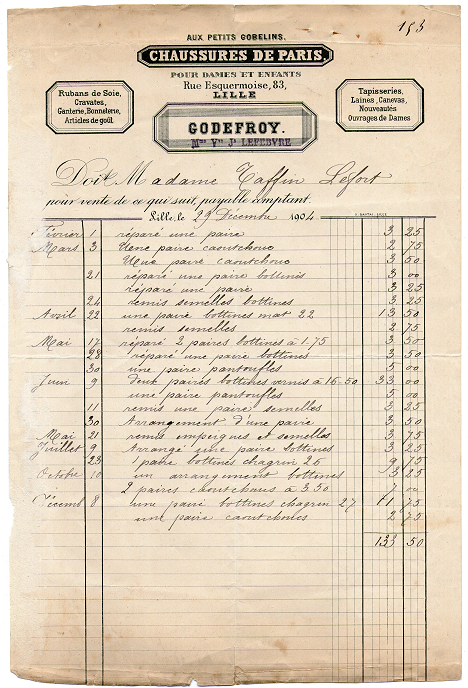 193
AUX PETITS GOBELINS.
CHAUSSURES DE PARIS,
POUR DAMES ET ENFANTS
Rue Esquermoise, 83,
LILLE
Rubans de Soie,
Cravates,
Ganterie, Bonneterie,
Articles de goût.
GODEFROY.
Mme Vve Jh LEFEBVRE
Tapisseries,
Laines, Canevas,
Nouveautés
Ouvrages de Dames
Doit Madame Taffin Lefort
pour vente de ce qui suit, payable comptant.
Lille, le 29 Décembre 1904
Février 1 réparé une paire 3 25
Mars 3 Une paire caoutchouc 2 75
Une paire caoutchouc 3 50
21 réparé une paire bottines 3 00
réparé une paire 3 25
24 remis semelles bottines 3 25
Avril 22 une paire bottines mat 22 13 50
remis semelles 2 75
Mai 17 réparé 2 paires bottines à 1.75 3 50
28 réparé une paire bottines 3 50
30 une paire pantoufles 5 00
Juin 9 deux paires bottines vernis à 16.50 33 00
une paire pantoufles 5 00
11 remis une paire semelles 3 25
30 Arrangement d'une paire 3 50
Mai 21 remis empeignes et semelles 3 75
Juillet 9 Arrangé une paire bottines 3 25
23 1 paire bottines chagrin 26 9 75
Octobre 10 un arrangement bottines 3 25
2 paires caoutchoucs à 3 50 7 00
Décemb 8 une paire bottines chagrin 27 11 75
une paire caoutchoucs 2 75
133 50